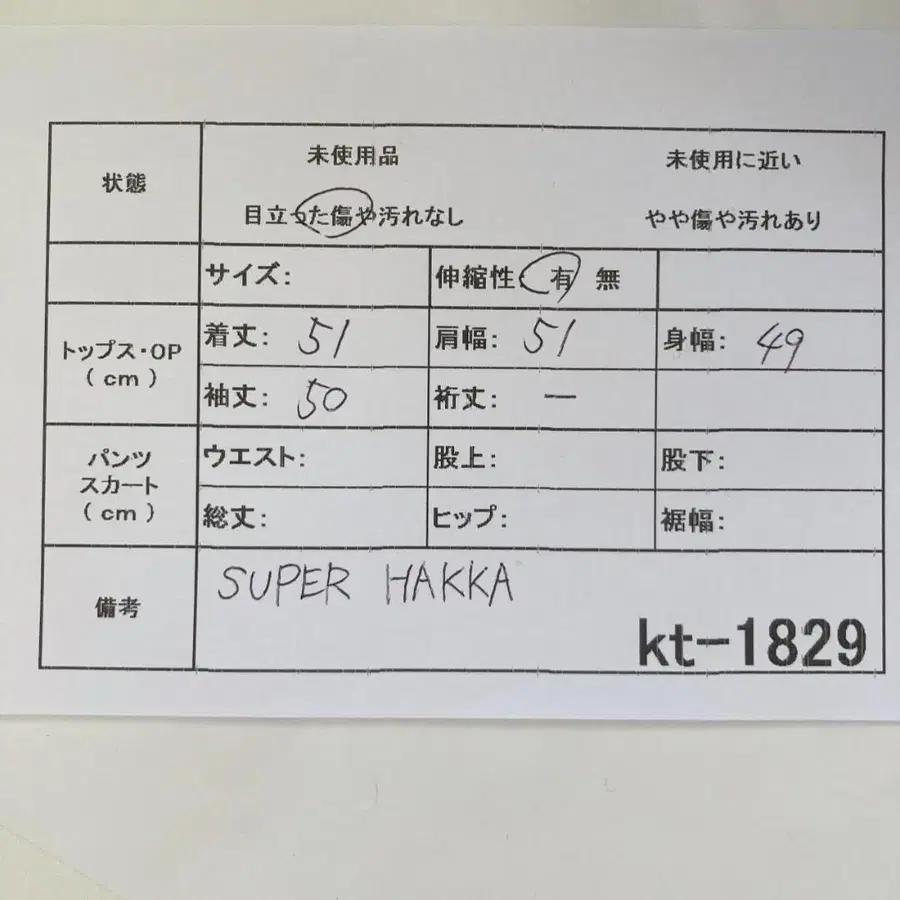 状態
未使用品 未使用に近い
目立った傷や汚れなし やや傷や汚れあり
サイズ: 伸縮性: 有 無
トップス・OP
(cm)
着丈: 51 肩幅: 51 身幅: 49
袖丈: 50 裄丈: ー
パンツ
スカート
(cm)
ウエスト: 股上: 股下:
総丈: ヒップ: 裾幅:
備考
SUPER HAKKA
kt-1829